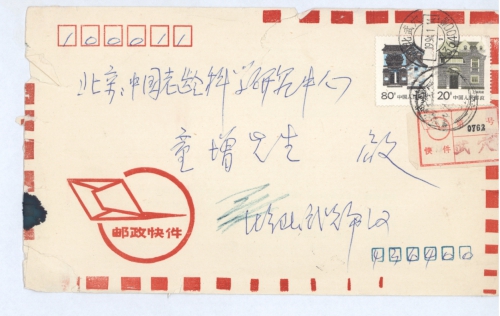 100011
80分 中国人民邮政
20分 中国人民邮政
北京:中国老龄科学研究中心
0763
童增先生
邮政快件
436400